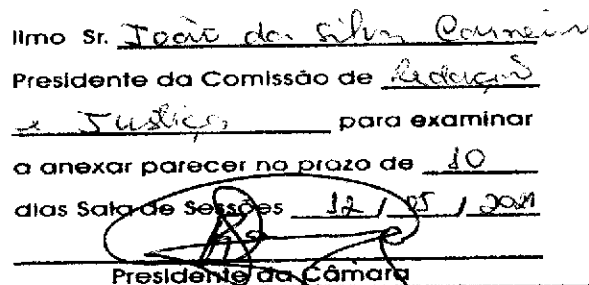 Ilmo Sr. João da Silva Carneiro
Presidente da Comissão de Redação
e Justiça para examinar
a anexar parecer no prazo de 10
dias Sala de Sessões 12 / 05 / 2021
Presidente da Câmara